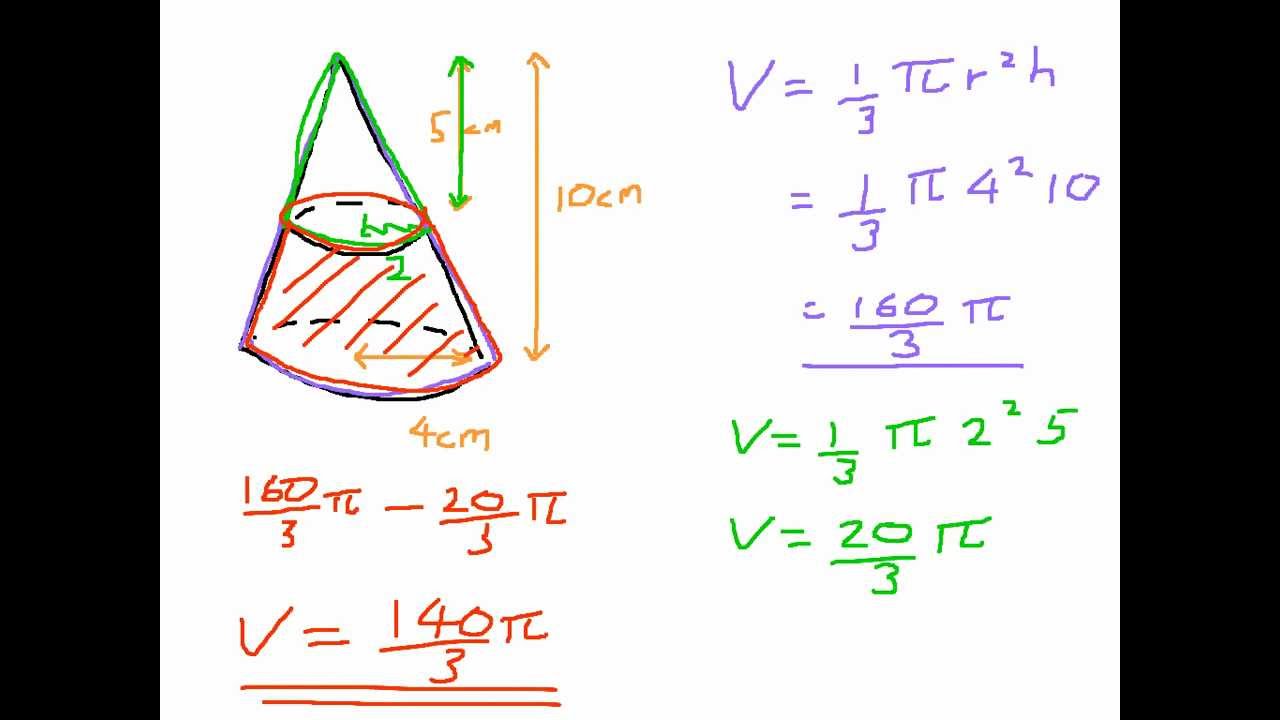 5cm
10cm
2
4cm
160/3 π − 20/3 π
V = 140π/3
V = 1/3 π r² h
= 1/3 π 4² 10
= 160/3 π
V = 1/3 π 2² 5
V = 20/3 π